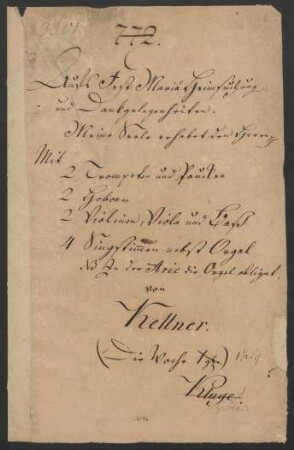 772.
Aufs Fest Mariä Heimsuchung
und Dankgelegenheiten.
Meine Seele erhebet den Herrn
Mit
2 Trompeten und Paucken
2 Hoboen
2 Violinen, Viola und Bass
4 Singstimmen nebst Orgel
NB In der Arie die Orgel obligat.
von
Kellner.
(Die Woche
Kluge.